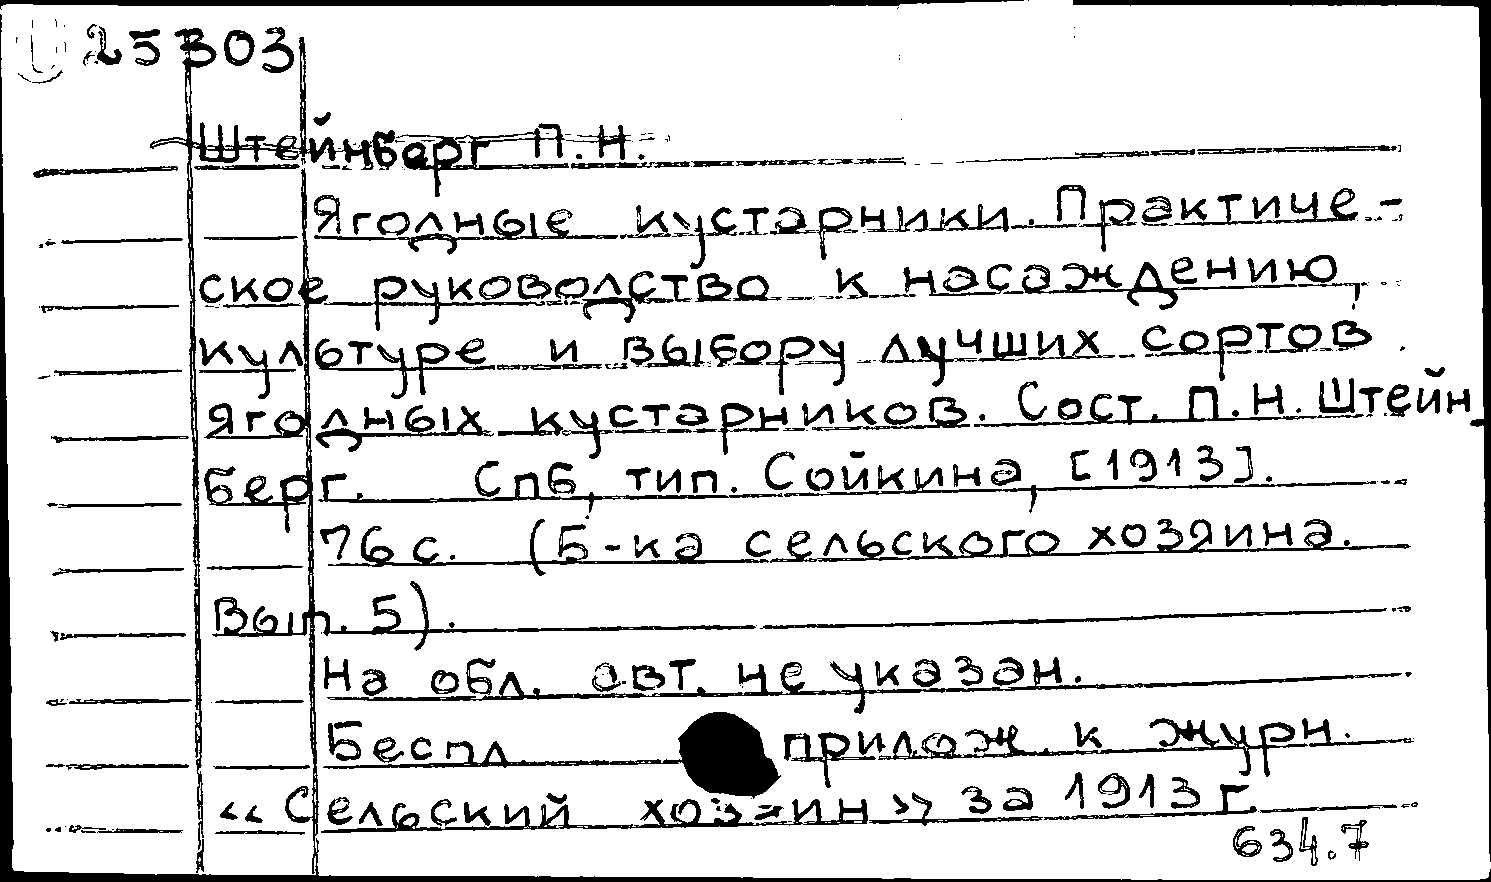 25303
Штейнберг П.Н.
Ягодные кустарники. Практиче-
ское руководство к насаждению,
культуре и выбору лучших сортов
ягодных кустарников. Сост. П.Н. Штейн-
берг. Спб, тип. Сойкина, [1913].
76 с. (Б-ка сельского хозяина.
Вып. 5).
На обл. авт. не указан.
Беспл. прилож. к журн.
«Сельский хозяин» за 1913 г.
634.7